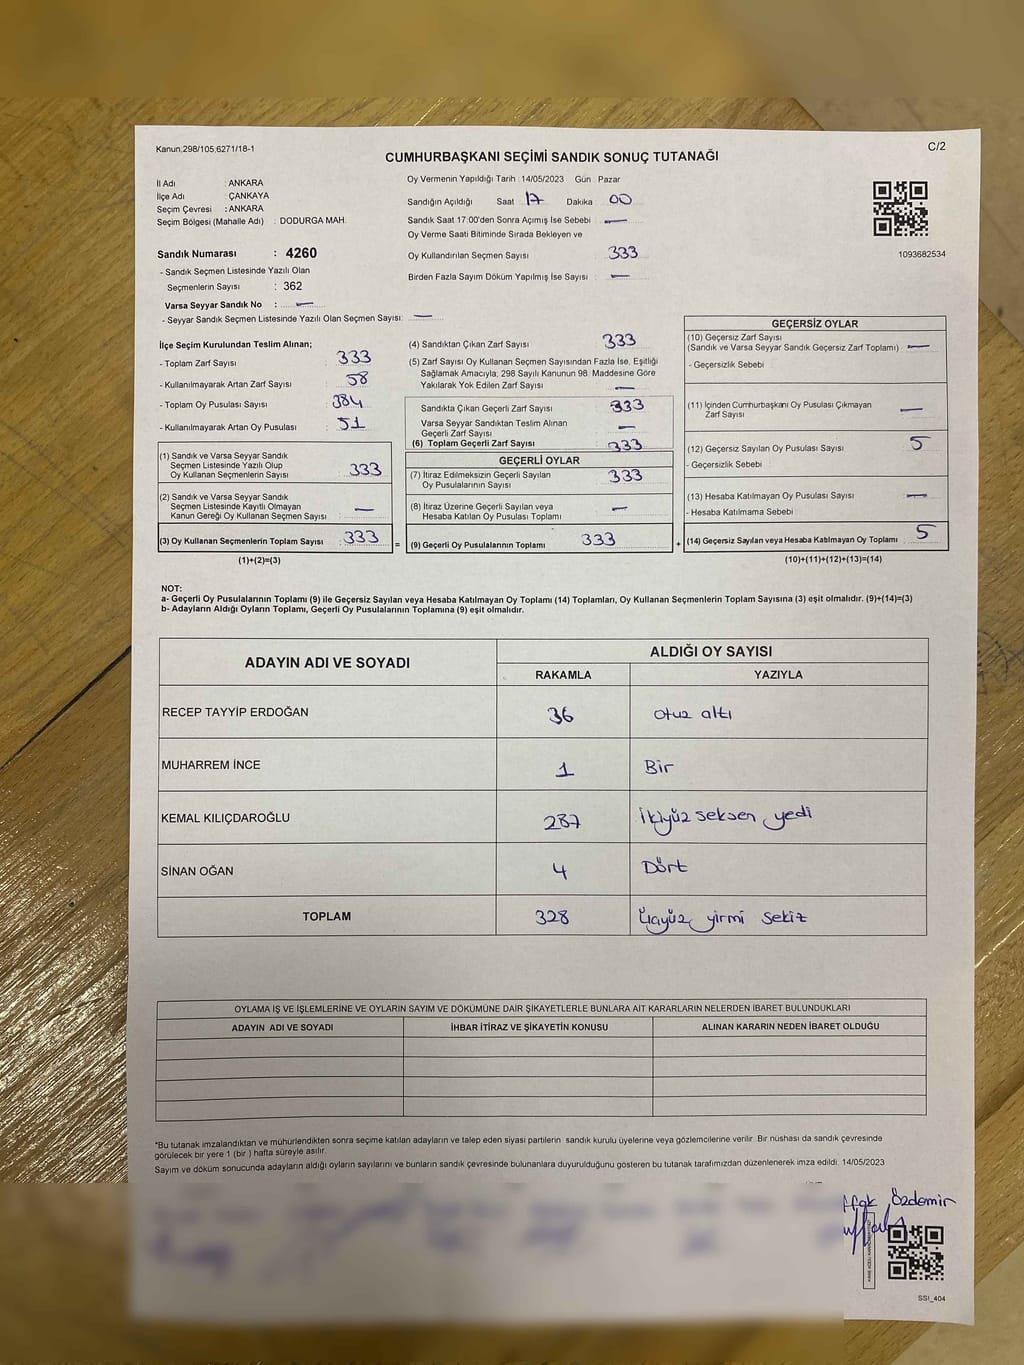 Kanun;298/105;6271/18-1
C/2
CUMHURBAŞKANI SEÇİMİ SANDIK SONUÇ TUTANAĞI
İl Adı : ANKARA
İlçe Adı : ÇANKAYA
Seçim Çevresi : ANKARA
Seçim Bölgesi (Mahalle Adı) : DODURGA MAH.
Oy Vermenin Yapıldığı Tarih : 14/05/2023 Gün : Pazar
Sandığın Açıldığı Saat 17 Dakika 00
Sandık Saat 17:00'den Sonra Açımış İse Sebebi : —
Oy Verme Saati Bitiminde Sırada Bekleyen ve
Oy Kullandırılan Seçmen Sayısı : 333
Birden Fazla Sayım Döküm Yapılmış İse Sayısı : —
1093682534
Sandık Numarası : 4260
- Sandık Seçmen Listesinde Yazılı Olan
Seçmenlerin Sayısı : 362
Varsa Seyyar Sandık No : —
- Seyyar Sandık Seçmen Listesinde Yazılı Olan Seçmen Sayısı: —
İlçe Seçim Kurulundan Teslim Alınan;
- Toplam Zarf Sayısı : 333
- Kullanılmayarak Artan Zarf Sayısı : 58
- Toplam Oy Pusulası Sayısı : 384
- Kullanılmayarak Artan Oy Pusulası : 51
(1) Sandık ve Varsa Seyyar Sandık
Seçmen Listesinde Yazılı Olup
Oy Kullanan Seçmenlerin Sayısı : 333
(2) Sandık ve Varsa Seyyar Sandık
Seçmen Listesinde Kayıtlı Olmayan
Kanun Gereği Oy Kullanan Seçmen Sayısı : —
(3) Oy Kullanan Seçmenlerin Toplam Sayısı : 333
(1)+(2)=(3)
=
(4) Sandıktan Çıkan Zarf Sayısı : 333
(5) Zarf Sayısı Oy Kullanan Seçmen Sayısından Fazla İse, Eşitliği
Sağlamak Amacıyla; 298 Sayılı Kanunun 98. Maddesine Göre
Yakılarak Yok Edilen Zarf Sayısı : —
Sandıkta Çıkan Geçerli Zarf Sayısı : 333
Varsa Seyyar Sandıktan Teslim Alınan
Geçerli Zarf Sayısı : —
(6) Toplam Geçerli Zarf Sayısı : 333
GEÇERLİ OYLAR
(7) İtiraz Edilmeksizin Geçerli Sayılan
Oy Pusulalarının Sayısı : 333
(8) İtiraz Üzerine Geçerli Sayılan veya
Hesaba Katılan Oy Pusulası Toplamı : —
(9) Geçerli Oy Pusulalarının Toplamı : 333
+
GEÇERSİZ OYLAR
(10) Geçersiz Zarf Sayısı
(Sandık ve Varsa Seyyar Sandık Geçersiz Zarf Toplamı) : —
- Geçersizlik Sebebi :
(11) İçinden Cumhurbaşkanı Oy Pusulası Çıkmayan
Zarf Sayısı : —
(12) Geçersiz Sayılan Oy Pusulası Sayısı : 5
- Geçersizlik Sebebi :
(13) Hesaba Katılmayan Oy Pusulası Sayısı : —
- Hesaba Katılmama Sebebi :
(14) Geçersiz Sayılan veya Hesaba Katılmayan Oy Toplamı : 5
(10)+(11)+(12)+(13)=(14)
NOT:
a- Geçerli Oy Pusulalarının Toplamı (9) ile Geçersiz Sayılan veya Hesaba Katılmayan Oy Toplamı (14) Toplamları, Oy Kullanan Seçmenlerin Toplam Sayısına (3) eşit olmalıdır. (9)+(14)=(3)
b- Adayların Aldığı Oyların Toplamı, Geçerli Oy Pusulalarının Toplamına (9) eşit olmalıdır.
ADAYIN ADI VE SOYADI
ALDIĞI OY SAYISI
RAKAMLA YAZIYLA
RECEP TAYYİP ERDOĞAN 36 otuz altı
MUHARREM İNCE 1 Bir
KEMAL KILIÇDAROĞLU 287 İkiyüz seksen yedi
SİNAN OĞAN 4 Dört
TOPLAM 328 Üçyüz yirmi sekiz
OYLAMA İŞ VE İŞLEMLERİNE VE OYLARIN SAYIM VE DÖKÜMÜNE DAİR ŞİKAYETLERLE BUNLARA AİT KARARLARIN NELERDEN İBARET BULUNDUKLARI
ADAYIN ADI VE SOYADI İHBAR İTİRAZ VE ŞİKAYETİN KONUSU ALINAN KARARIN NEDEN İBARET OLDUĞU
*Bu tutanak imzalandıktan ve mühürlendikten sonra seçime katılan adayların ve talep eden siyasi partilerin sandık kurulu üyelerine veya gözlemcilerine verilir. Bir nüshası da sandık çevresinde
görülecek bir yere 1 (bir ) hafta süreyle asılır.
Sayım ve döküm sonucunda adayların aldığı oyların sayılarını ve bunların sandık çevresinde bulunanlara duyurulduğunu gösteren bu tutanak tarafımızdan düzenlenerek imza edildi. 14/05/2023
Özdemir
SSI_404